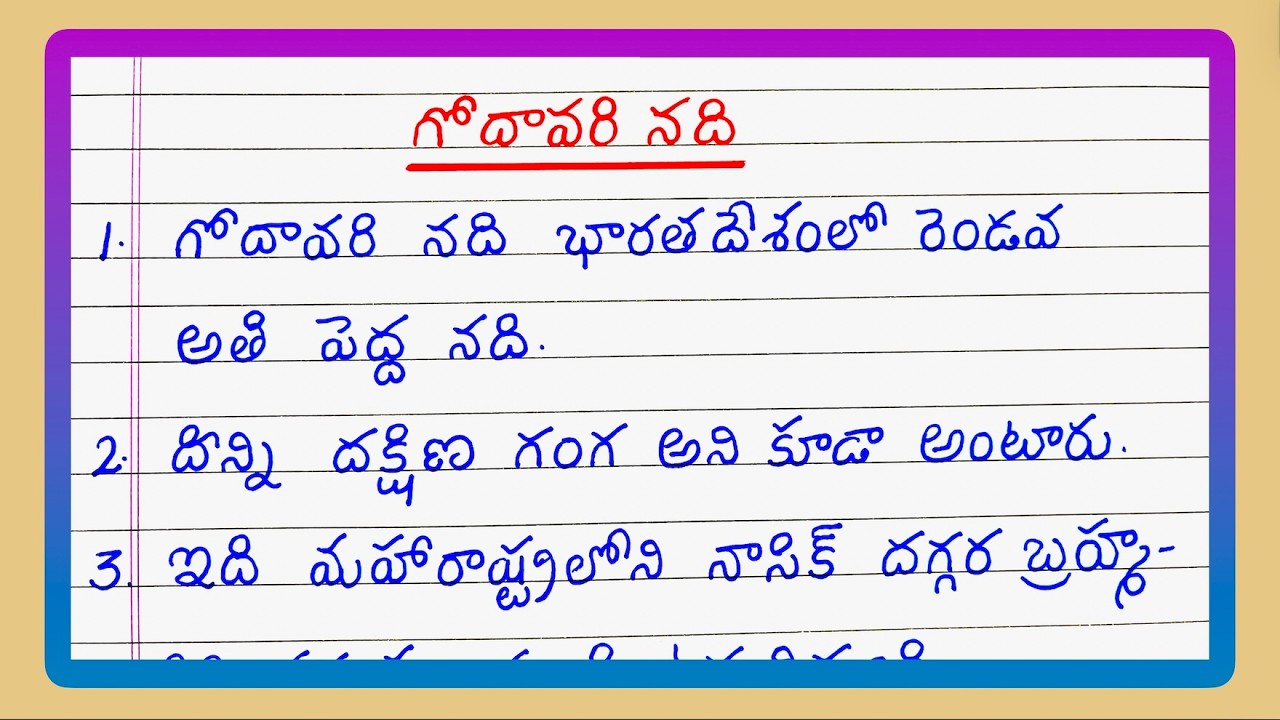 గోదావరి నది
1. గోదావరి నది భారతదేశంలో రెండవ
అతి పెద్ద నది.
2. దీన్ని దక్షిణ గంగ అని కూడా అంటారు.
3. ఇది మహారాష్ట్రలోని నాసిక్ దగ్గర బ్రహ్మ-